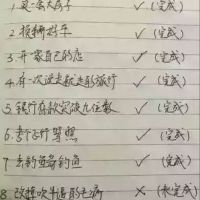 1.买一套大房子 ✓(完成)
2.换辆好车 ✓(完成)
3.开一家自己的店 ✓(完成)
4.有一次说走就走的旅行 ✓(完成)
5.银行存款突破九位数 ✓(完成)
6.考个飞行驾照 ✓(完成)
7.去钓鱼岛钓鱼 ✓(完成)
8.改掉吹牛逼的毛病 ×(未完成)